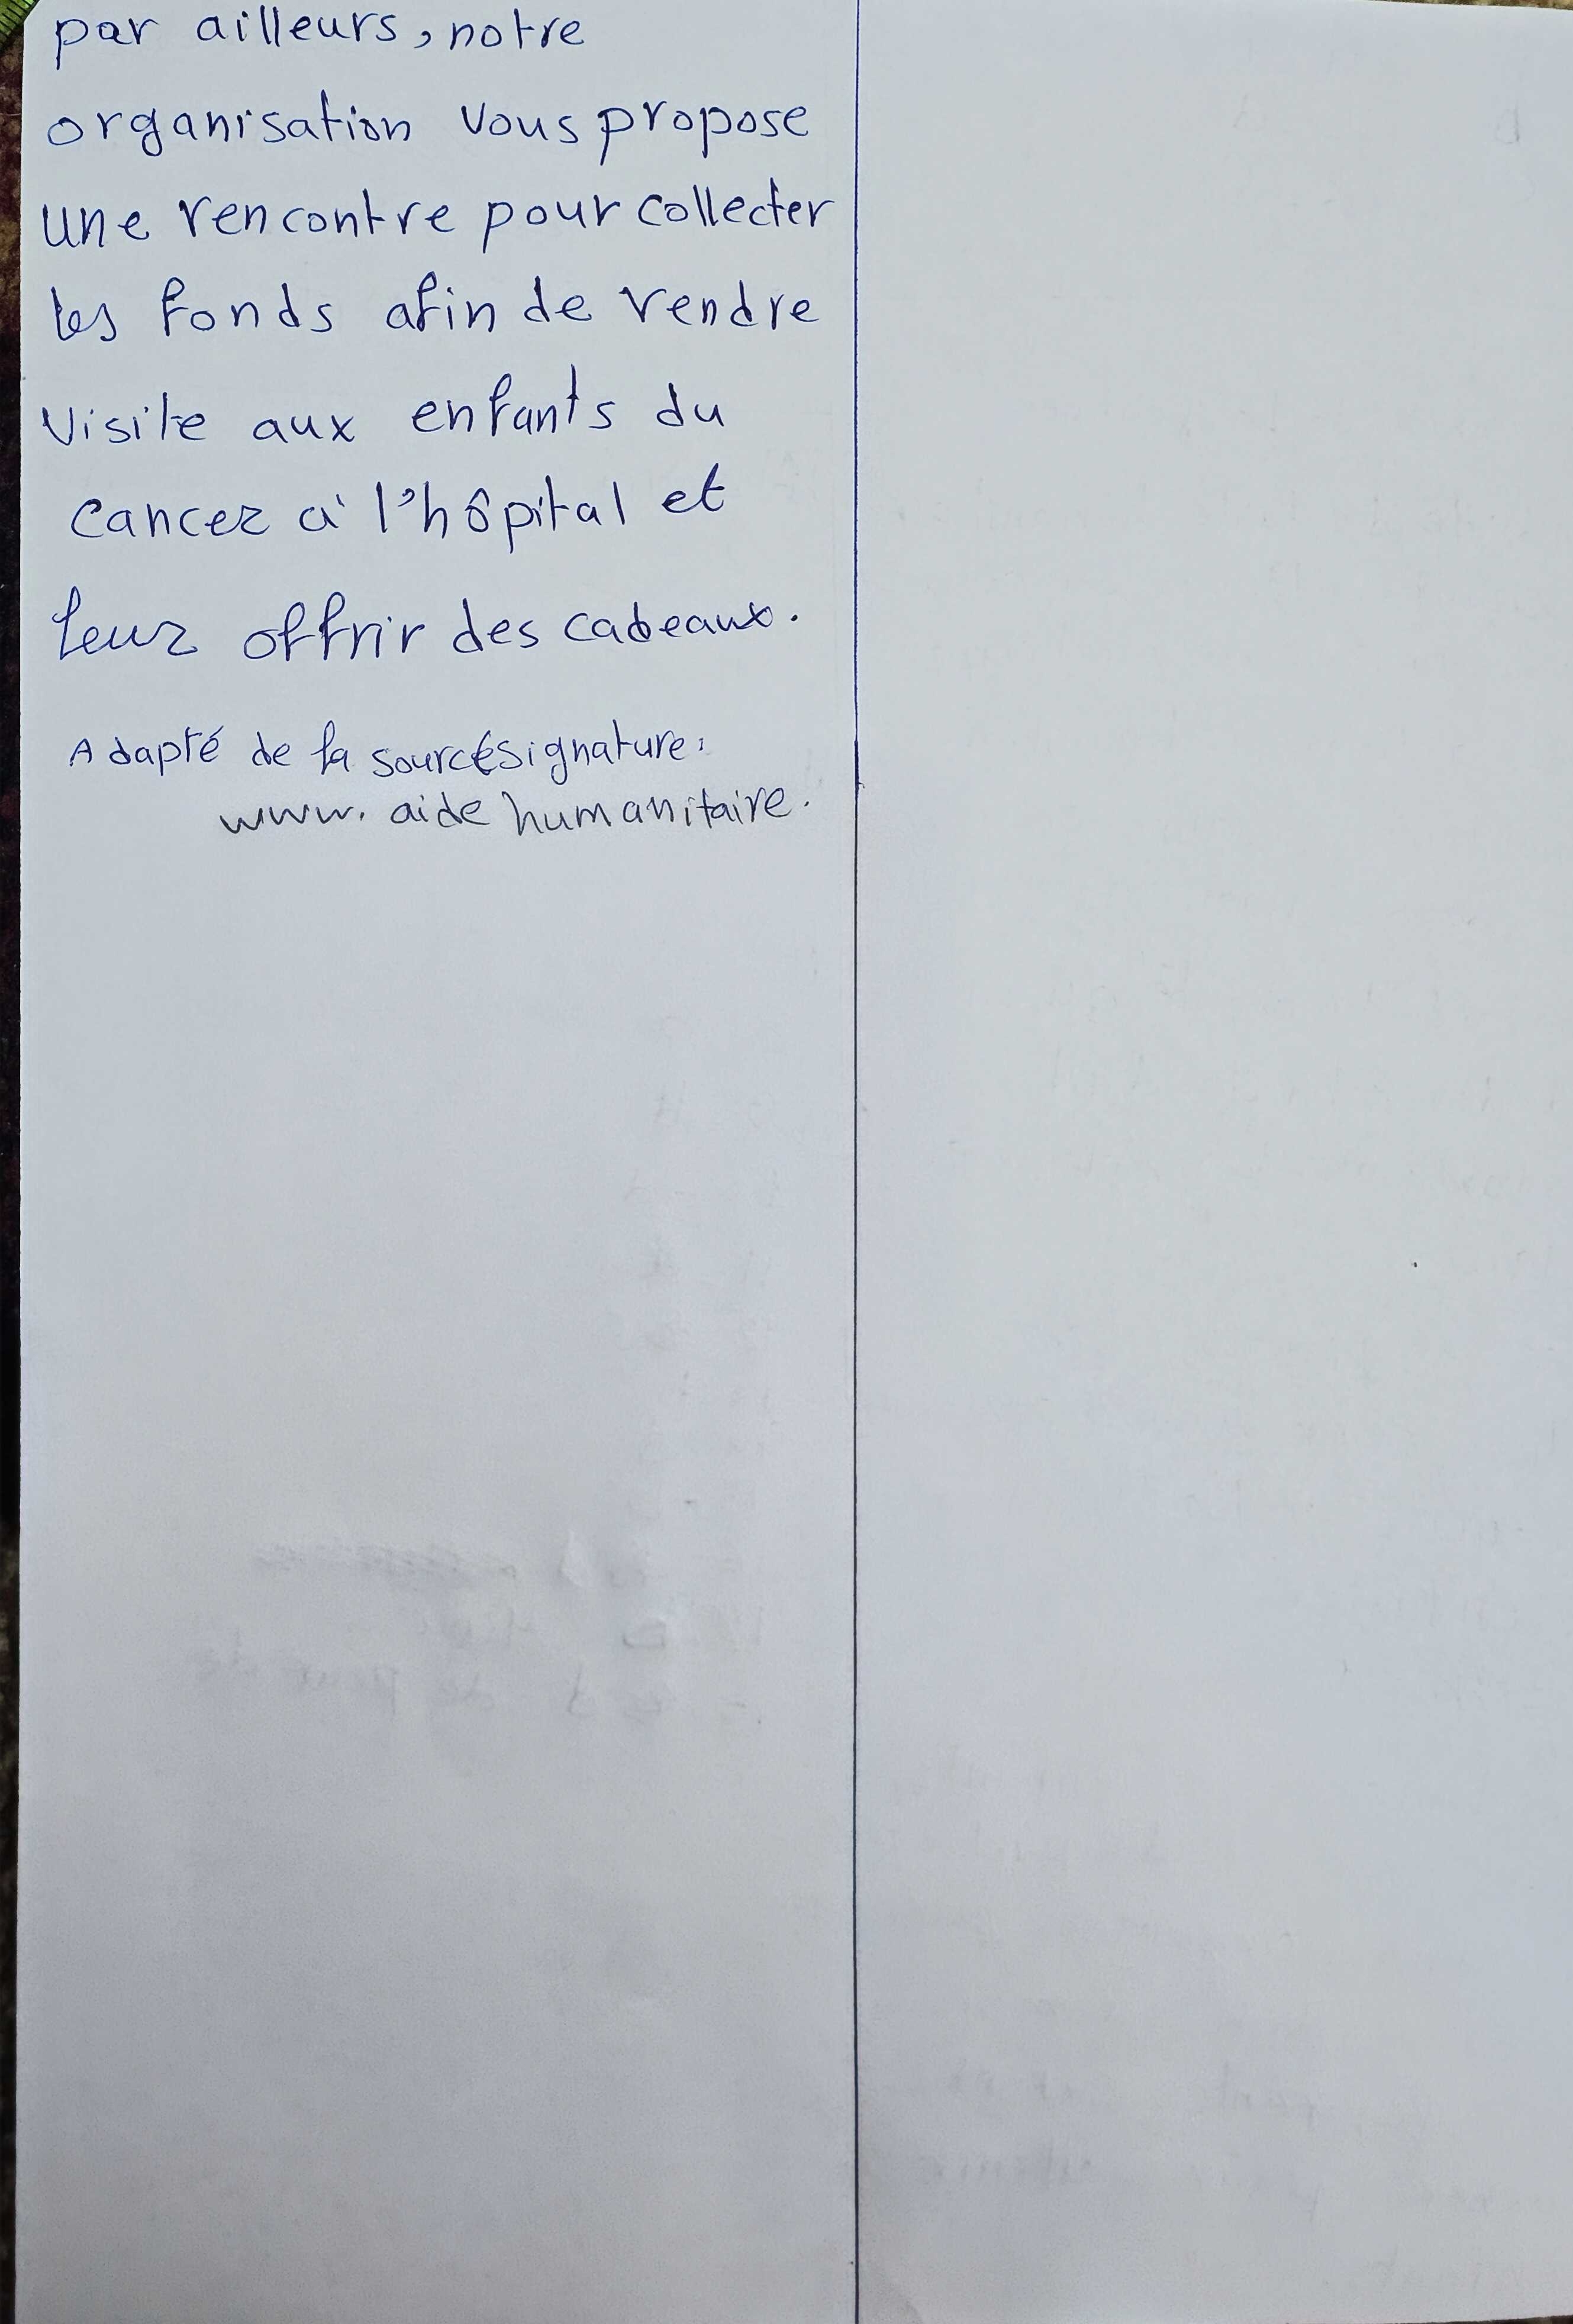 par ailleurs, notre
organisation vous propose
une rencontre pour collecter
les fonds afin de rendre
visite aux enfants du
cancer à l'hôpital et
leur offrir des cadeaux.
Adapté de la source signature:
www. aide humanitaire.